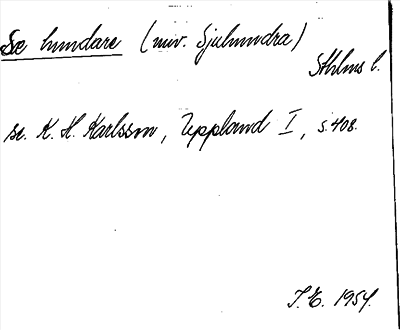 Sæ hundare (nuv. Sjuhundra)
Sthlms l.
se. K. H. Karlsson, Uppland I, s. 408.
I. E. 1954.